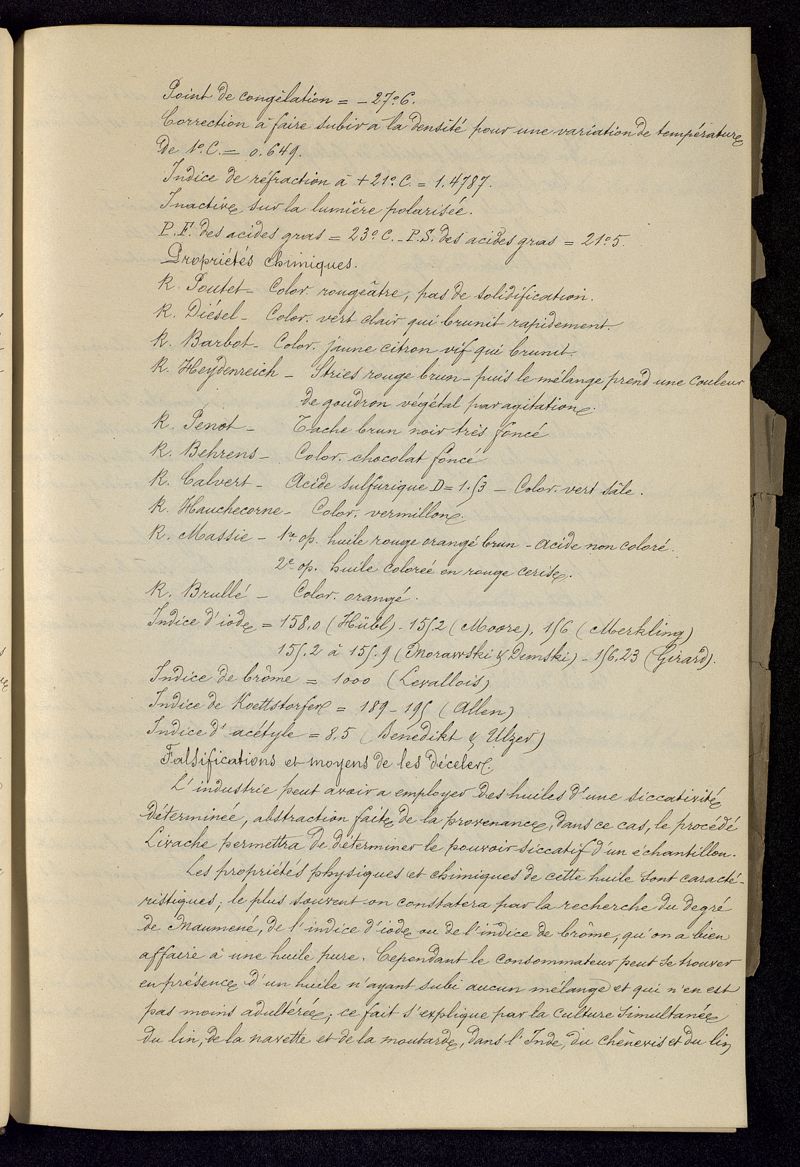 Point de congélation = - 27°6.
Correction à faire subir à la densité pour une variation de température
de 1° C. = 0.649.
Indice de réfraction à + 21° C. = 1.4787.
Inactive sur la lumière polarisée.
P.F. des acides gras = 23° C. - P.S. des acides gras = 21°5.
Propriétés chimiques.
R. Poutet - Color. rougeâtre, pas de solidification.
R. Diésel - Color. vert clair qui brunit rapidement.
R. Barbot - Color. jaune citron vif qui brunit.
R. Heydenreich - Stries rouge brun - puis le mélange prend une couleur
de goudron végétal par agitation.
R. Penot - Tache brun noir très foncé
R. Behrens - Color. chocolat foncé
R. Calvert - Acide sulfurique D = 1.53 - Color. vert sâle.
R. Hauchecorne - Color. vermillon.
R. Massie - 1re op. huile rouge orangé brun - acide non coloré.
2e op. huile colorée en rouge cerise.
R. Brullé - Color. orangé.
Indice d'iode = 158.0 (Hübl) - 155.2 (Moore), 156 (Merkling)
155.2 à 155.9 (Morawski & Demski) - 156,23 (Girard).
Indice de brôme = 1000 (Levallois)
Indice de Koettstorfer = 189 - 195 (Allen)
Indice d'acétyle = 8.5 (Benedikt & Ulzer)
Falsifications et moyens de les déceler
L'industrie peut avoir a employer des huiles d'une siccativité
déterminée, abstraction faite de la provenance, dans ce cas, le procédé
Livache permettra de déterminer le pouvoir siccatif d'un échantillon.
Les propriétés physiques et chimiques de cette huile sont caracté-
ristiques; le plus souvent on constatera par la recherche du degré
de Maumené, de l'indice d'iode ou de l'indice de brôme, qu'on a bien
affaire à une huile pure. Cependant le consommateur peut se trouver
en présence d'un huile n'ayant subi aucun mélange et qui n'en est
pas moins adultérée; ce fait s'explique par la culture simultanée
du lin, de la navette et de la moutarde, dans l'Inde, du chènevis et du lin